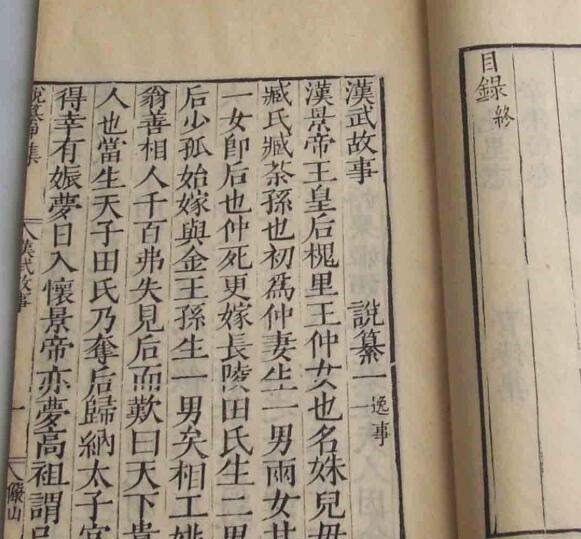 目錄終
漢武故事 說纂一 逸事
漢景帝王皇后槐里王仲女也名姝兒母
臧氏臧荼孫也初爲仲妻生一男兩女其
一女卽后也仲死更嫁長陵田氏生二男
后少孤始嫁與金王孫生一男矣相工姚
翁善相人千百弗失見后而歎曰天下貴
人也當生天子田氏乃奪后歸納太子宮
得幸有娠夢日入懷景帝亦夢高祖謂
漢武故事 一 儼山